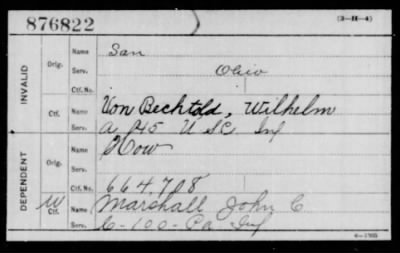 876822
(3-H-4)
INVALID
Orig.
Name San
Serv. Ohio
Ctf. No.
Ctf.
Name Von Bechtold, Wilhelm
Serv. A 45 U S C Inf
DEPENDENT
Orig.
Name How
Serv.
Ctf. No. 664,708
W Ctf.
Name Marshall John C.
Serv. C-100-Pa Inf